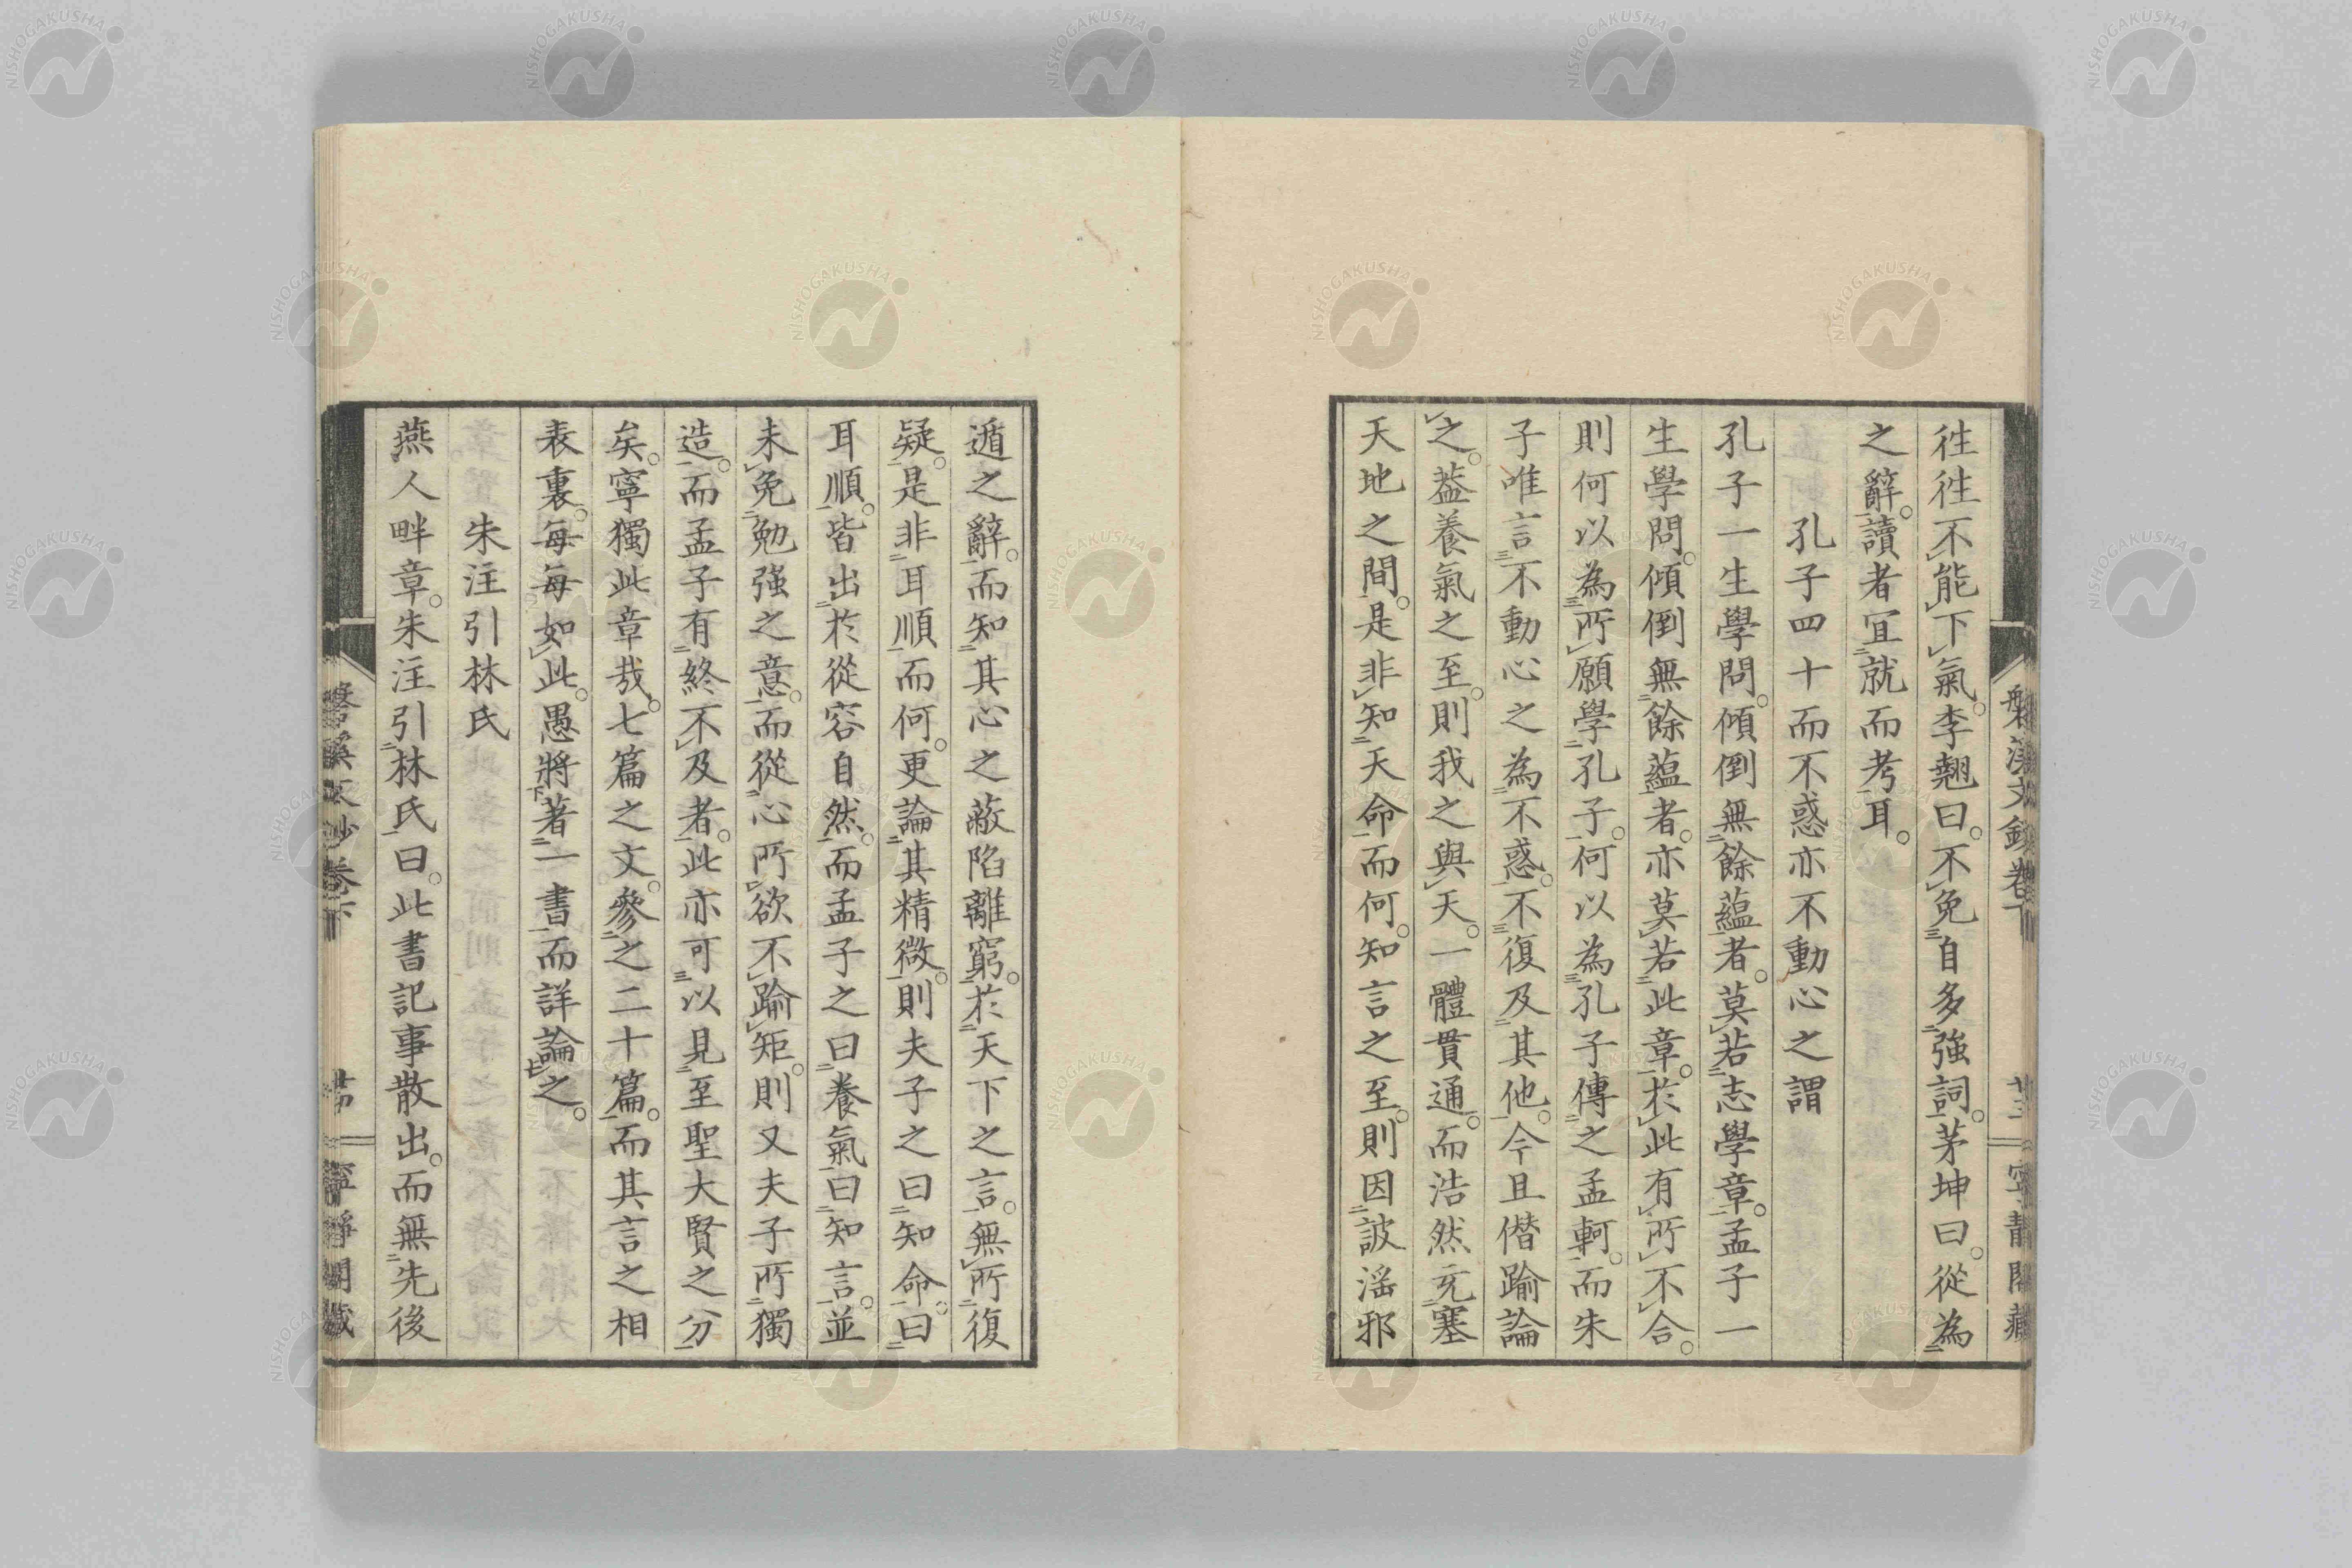 徃徃不能下氣。李翺曰。不免自多強詞。茅坤曰。從為
之辭。讀者宜就而考耳。
孔子四十而不惑亦不動心之謂
孔子一生學問。傾倒無餘蘊者。莫若志學章。孟子一
生學問。傾倒無餘蘊者。亦莫若此章。於此有所不合。
則何以為所願學孔子。何以為孔子傳之孟軻。而朱
子唯言不動心之為不惑。不復及其他。今且僭踰論
之。蓋養氣之至。則我之與天。一體貫通。而浩然充塞
天地之間。是非知天命而何。知言之至。則因詖淫邪
遁之辭。而知其心之蔽陷離窮。於天下之言。無所復
疑。是非耳順而何。更論其精微。則夫子之曰知命。曰
耳順。皆出於從容自然。而孟子之曰養氣。曰知言。並
未免勉強之意。而從心所欲不踰矩。則又夫子所獨
造。而孟子有終不及者。此亦可以見至聖大賢之分
矣。寧獨此章哉。七篇之文。參之二十篇。而其言之相
表裏。每每如此。愚將著一書而詳論之。
朱注引林氏
燕人畔章。朱注引林氏曰。此書記事散出。而無先後
磐溪文鈔卷下
廿三
寧靜閣藏
磐溪文鈔卷下
廿四
寧靜閣藏
NISHOGAKUSHA